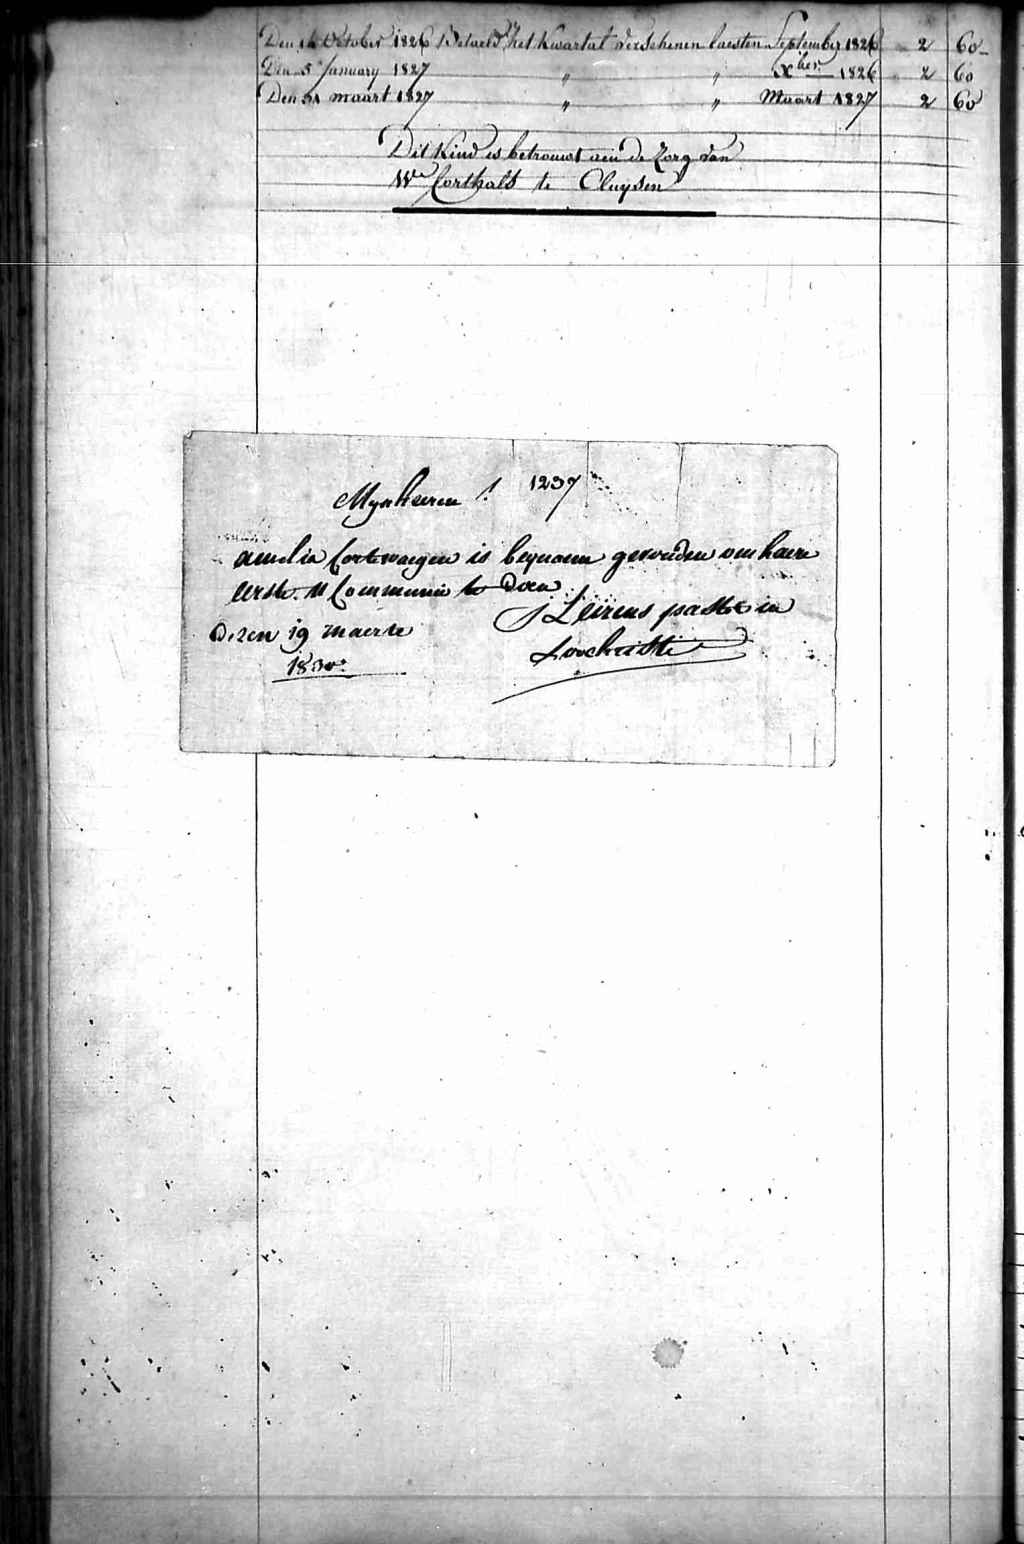 Den 14 October 1826 Betaeld het Kwartal verschenen laesten September 1826 2 60
Den 5 January 1827 " " Xber 1826 2 60
Den 31 maart 1827 " " Maart 1827 2 60
Dit Kind is betrouwt aen de Zorg van
We Corthals te Cluysen
Mynheeren ! 1237
amelia Cortewaegen is bequaem gevonden om haere
eerste H Communie te doen
J Leirens pastor in
Loochristi
dezen 19 maerte
1830